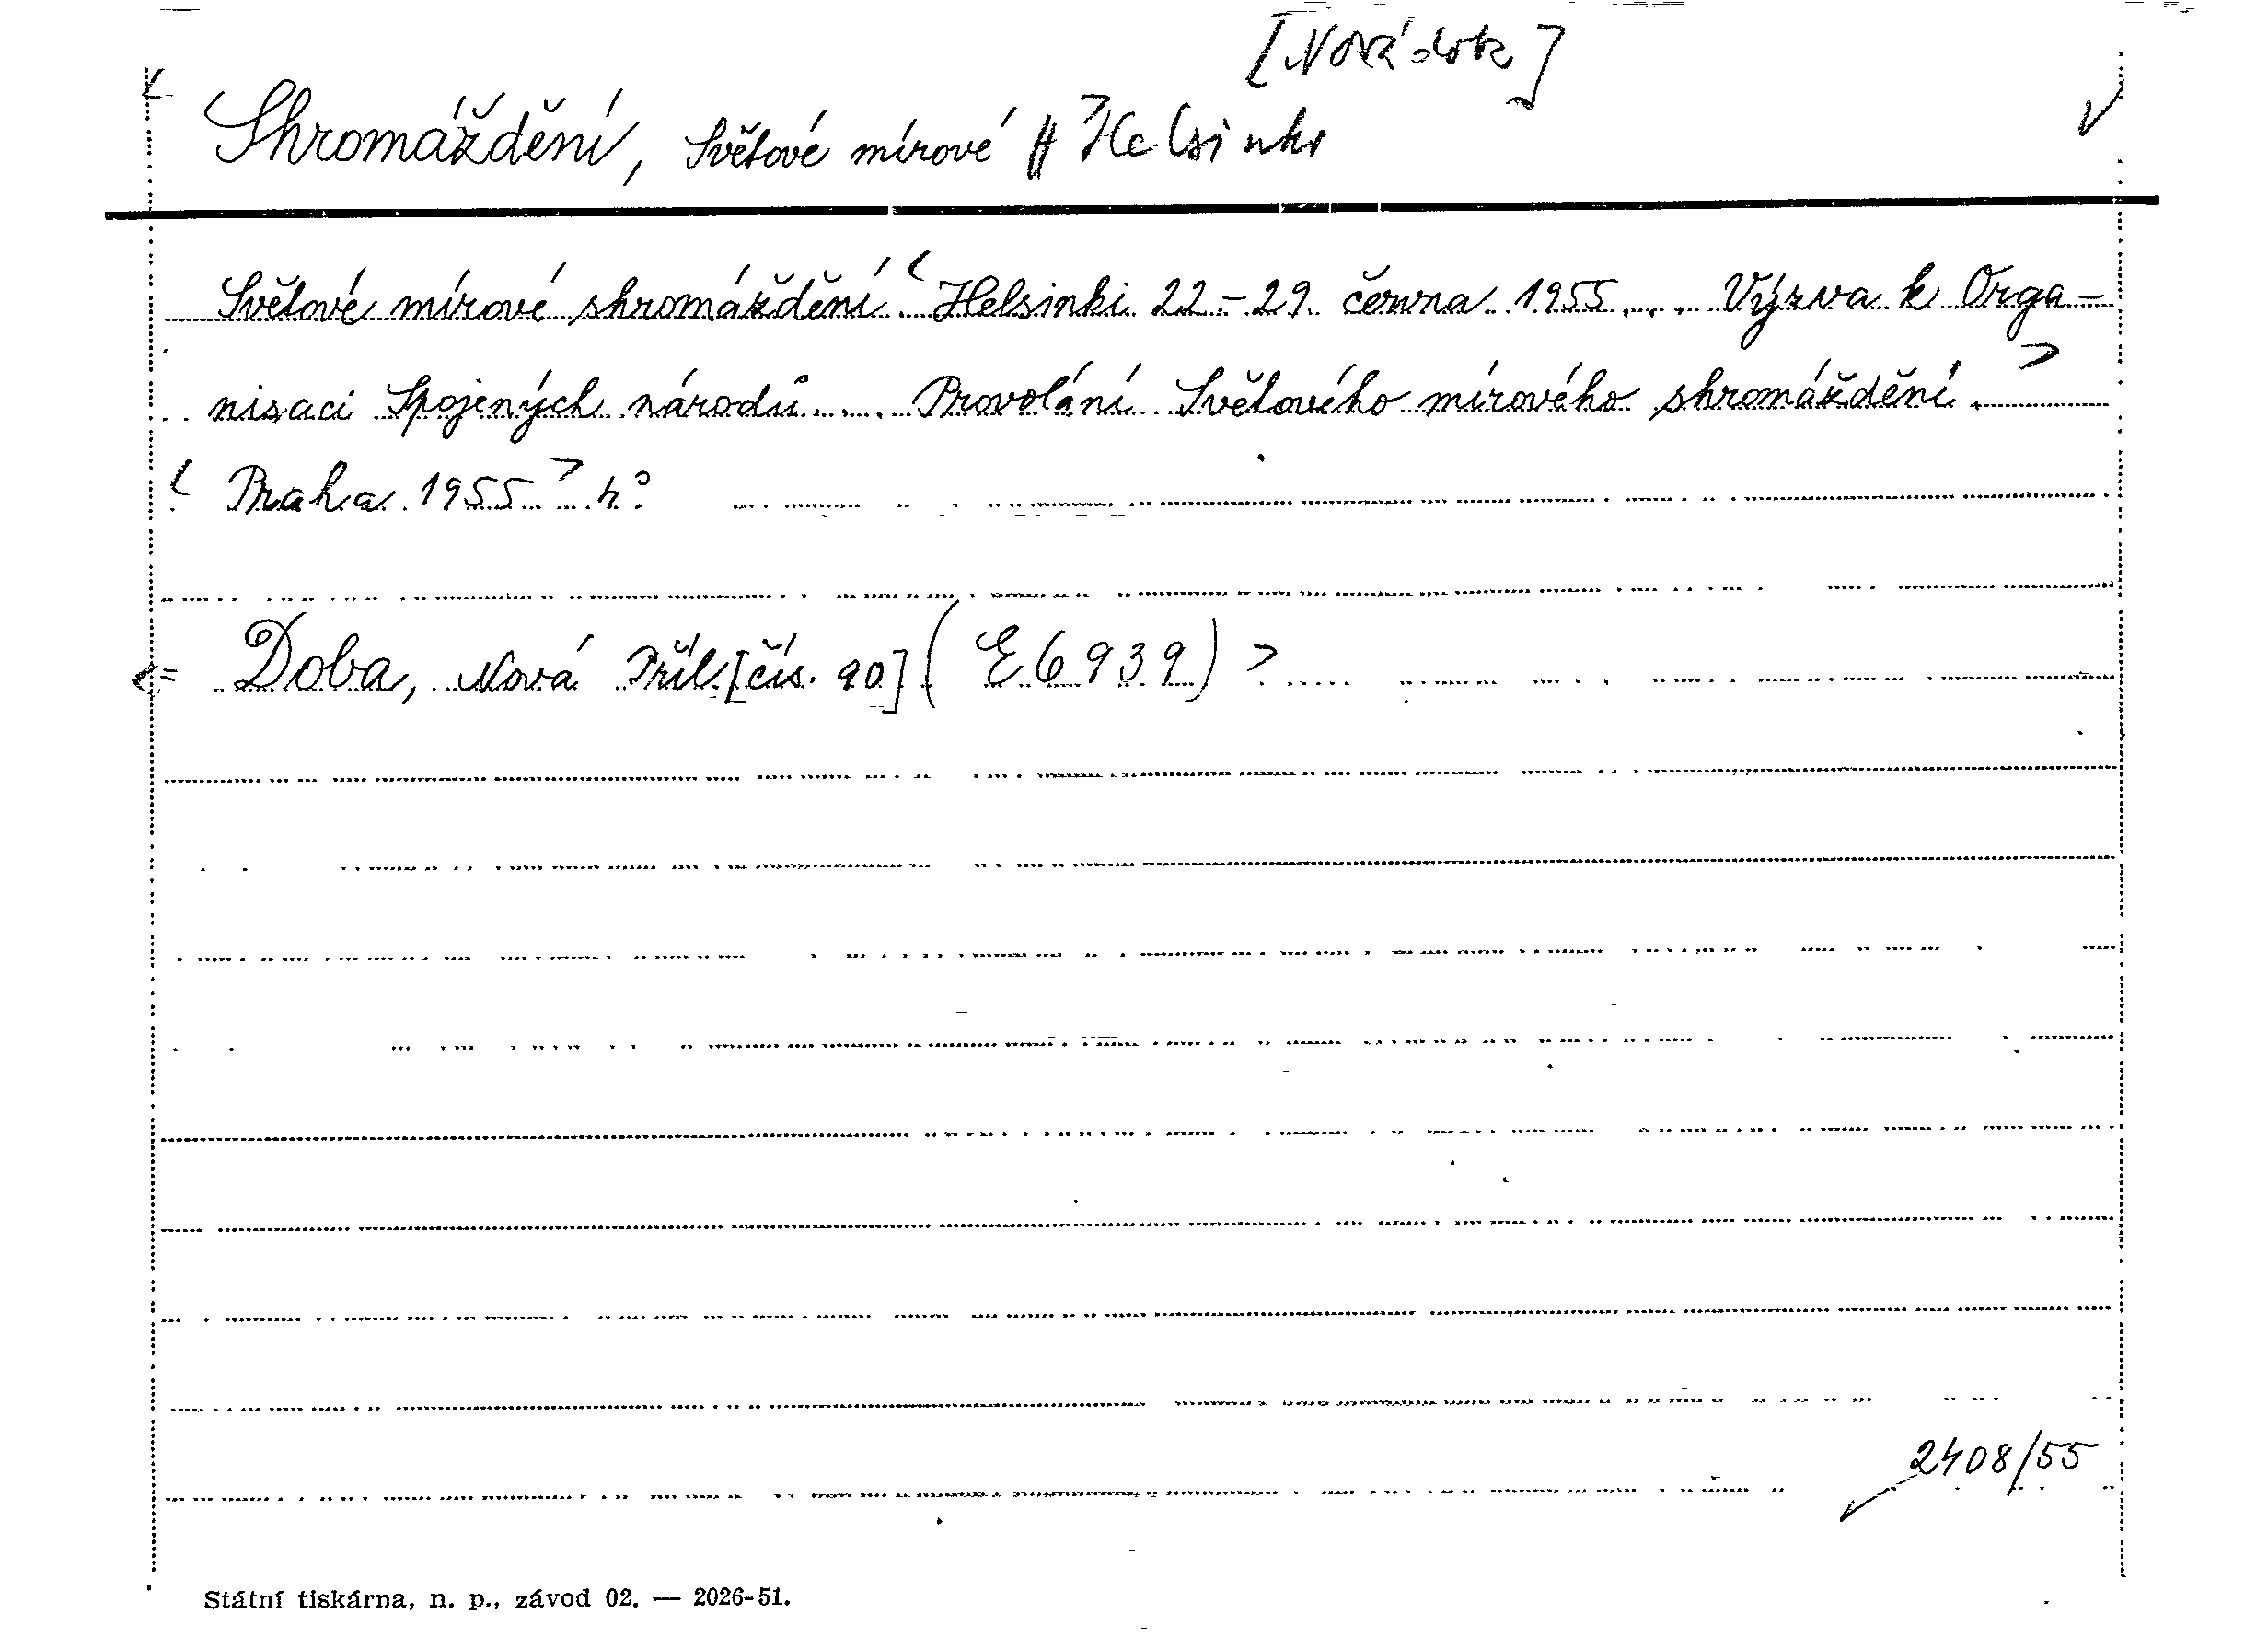 [Nová doba]
Shromáždění, Světové mírové # Helsinki
Světové mírové shromáždění. Helsinki 22.-29. června 1955. . . Výzva k Orga-
nisaci Spojených národů. . . Provolání Světového mírového shromáždění.
Praha 1955 4°
Doba, Nová Příl. [čís. 90] (E6939)
2408/55
Státní tiskárna, n. p., závod 02. — 2026-51.